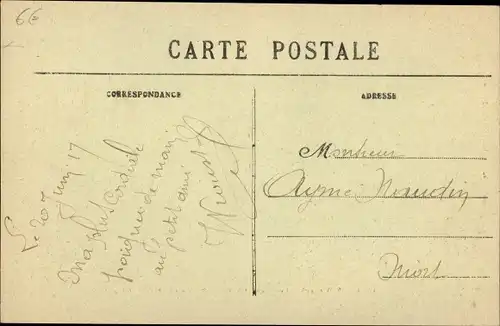 6€
CARTE POSTALE
CORRESPONDANCE
ADRESSE
Le 20
Juin 17
Ma plus cordiale
poignée de main
au petit ami
Monsieur
Aymé Naudin
Niort